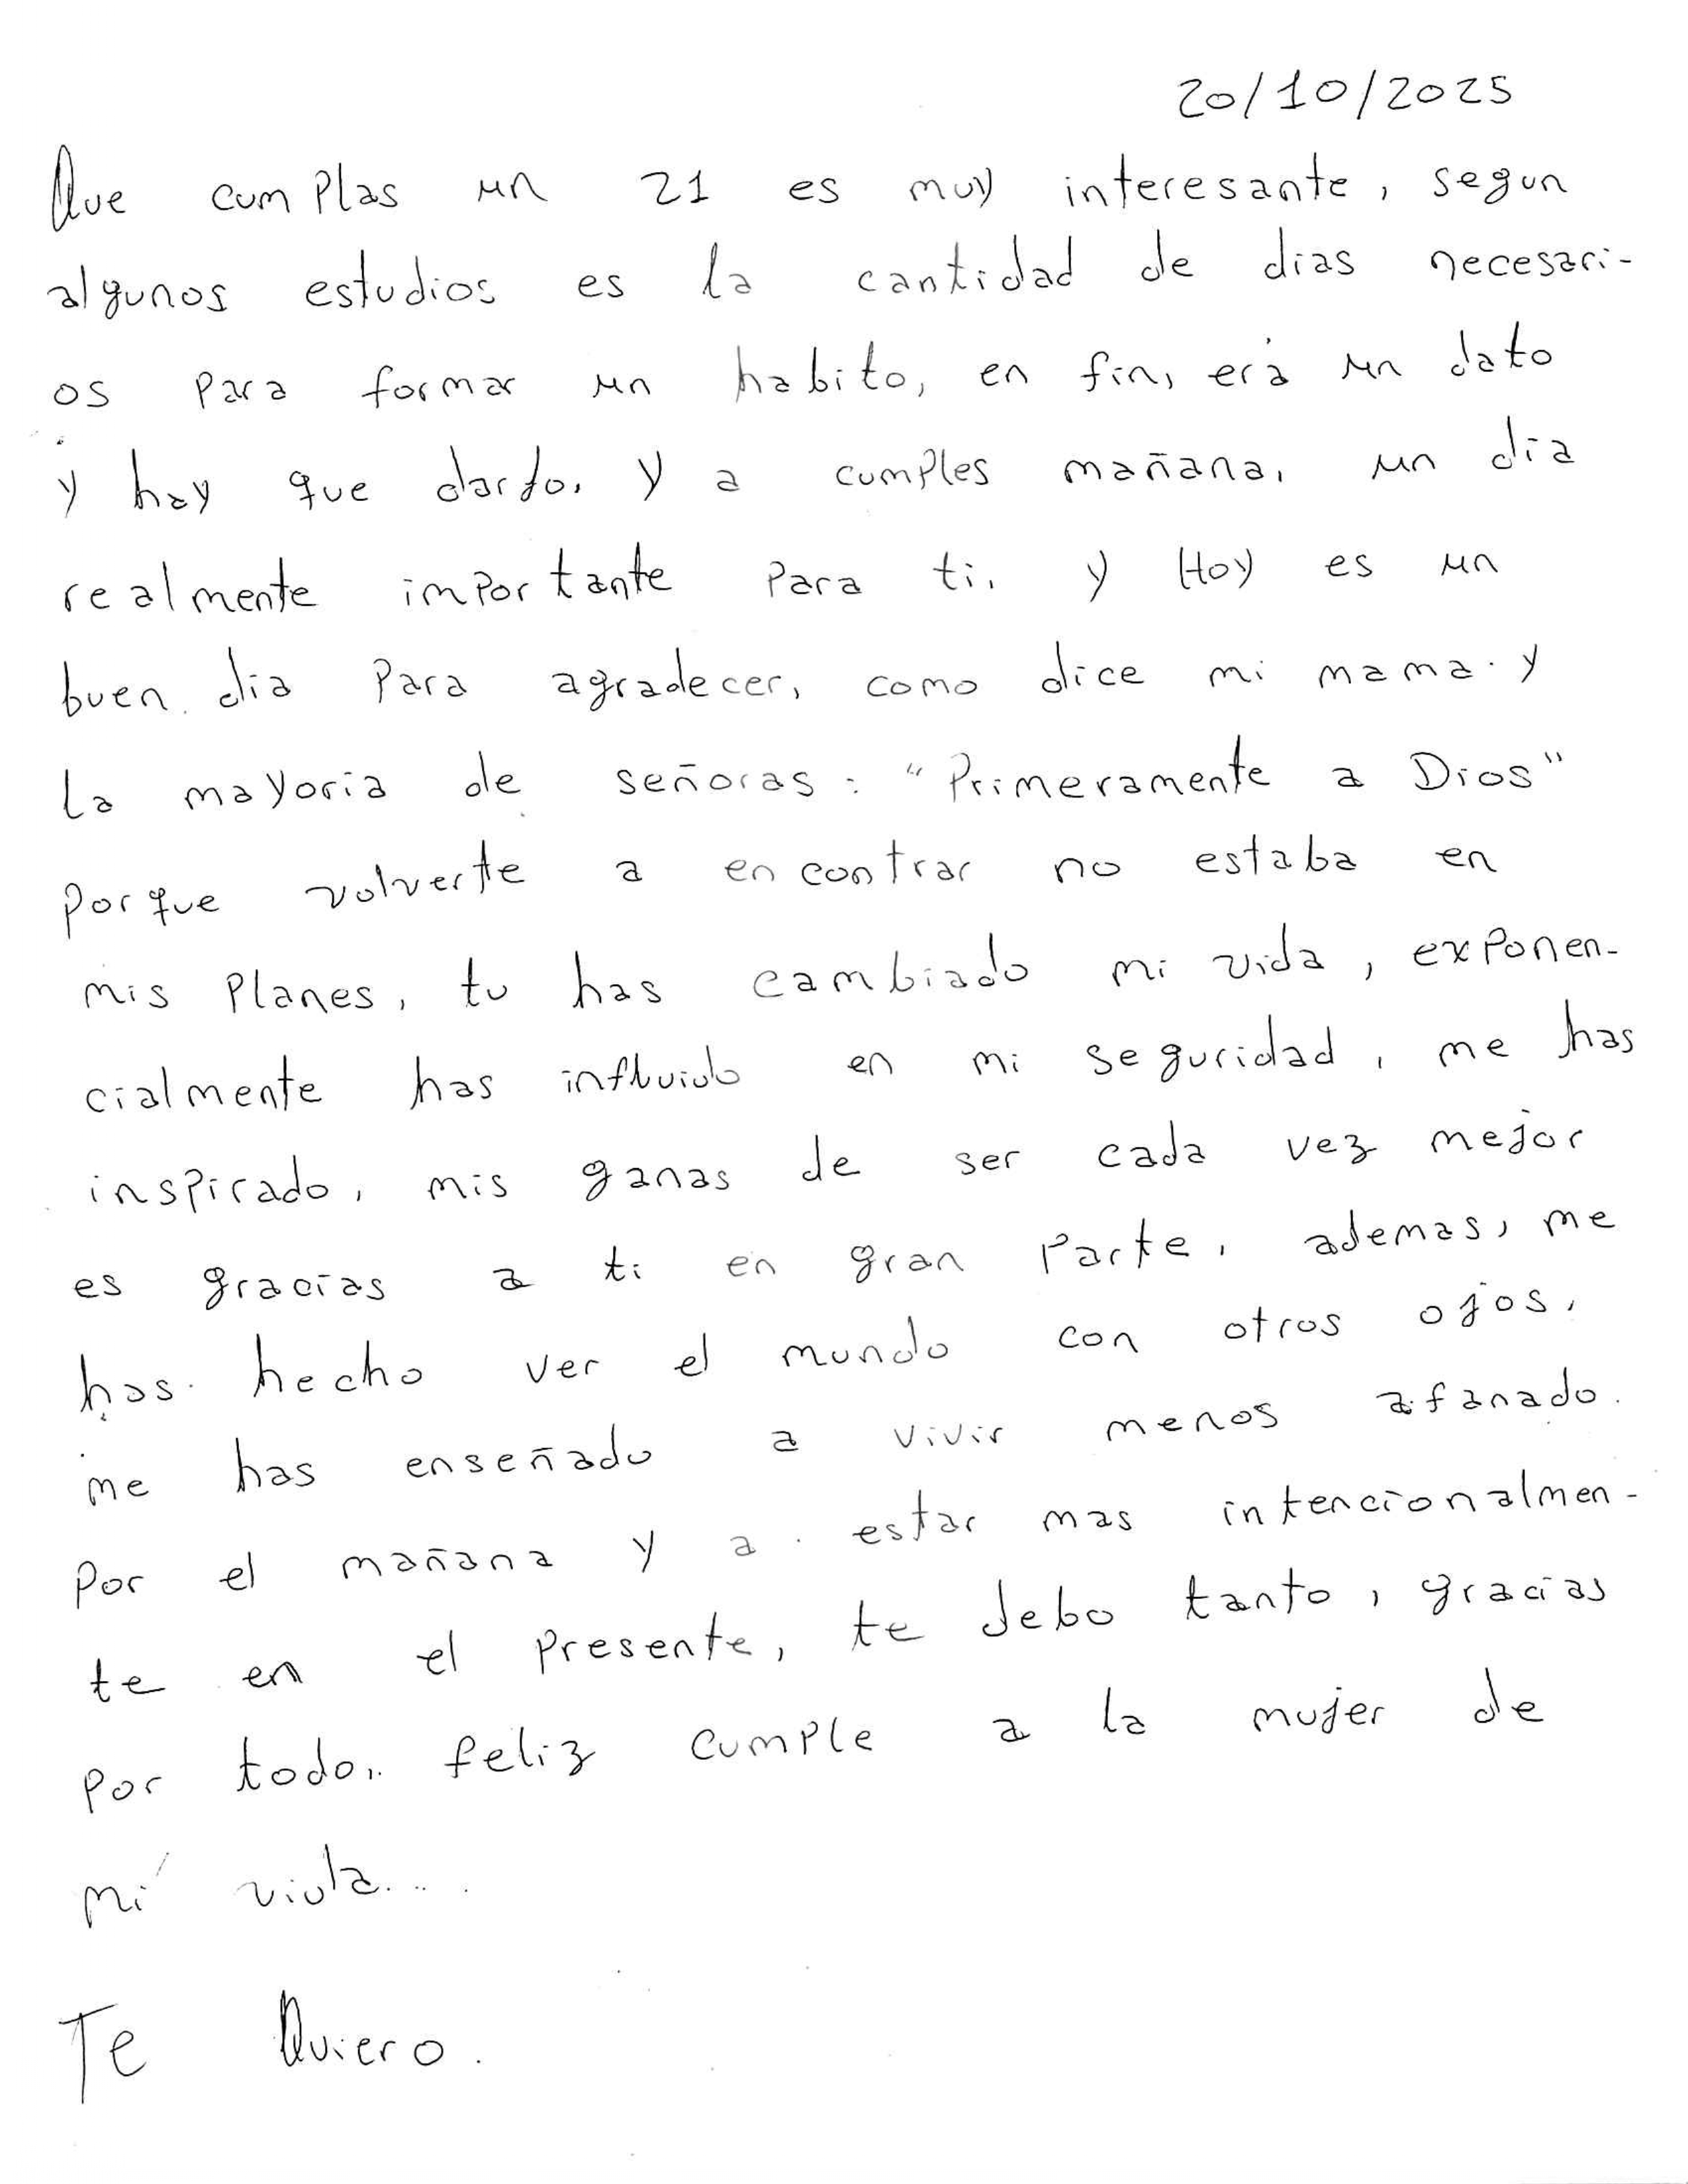 20/10/2025
Que cumplas un 21 es muy interesante, segun
algunos estudios es la cantidad de dias necesari-
os para formar un habito, en fin, era un dato
y hay que darlo. Y a cumples mañana, un dia
realmente importante para ti. y Hoy es un
buen dia para agradecer, como dice mi mama y
la mayoria de señoras: "Primeramente a Dios"
porque volverte a encontrar no estaba en
mis planes, tu has cambiado mi vida, exponen-
cialmente has influido en mi seguridad, me has
inspirado, mis ganas de ser cada vez mejor
es gracias a ti en gran parte, ademas, me
has hecho ver el mundo con otros ojos,
me has enseñado a vivir menos afanado
por el mañana y a estar mas intencionalmen-
te en el presente, te debo tanto, gracias
por todo.. feliz cumple a la mujer de
mi vida...
Te Quiero.